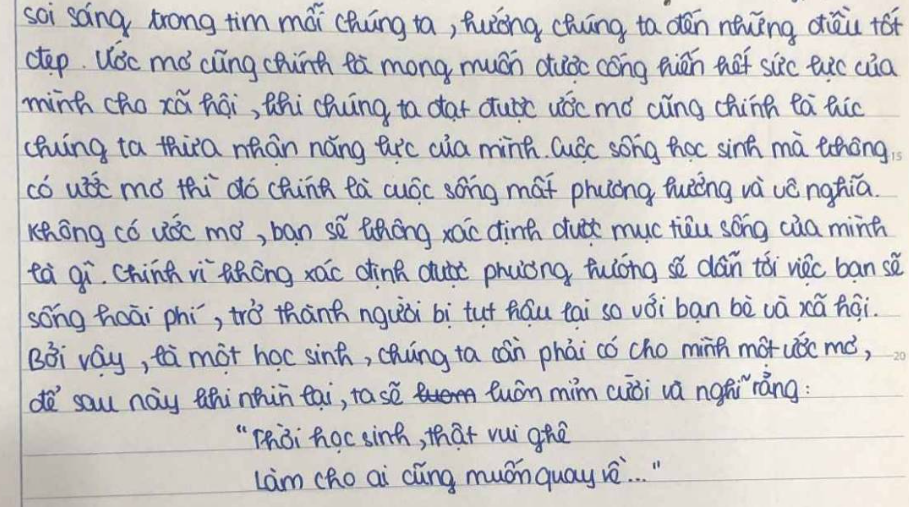 soi sáng trong tim mỗi chúng ta, hướng chúng ta đến những điều tốt
đẹp. Ước mơ cũng chính là mong muốn được cống hiến hết sức lực của
mình cho xã hội, khi chúng ta đạt được ước mơ cũng chính là lúc
chúng ta thừa nhận năng lực của mình. Cuộc sống học sinh mà không 15
có ước mơ thì đó chính là cuộc sống mất phương hướng và vô nghĩa.
Không có ước mơ, bạn sẽ không xác định được mục tiêu sống của mình
là gì. Chính vì không xác định được phương hướng sẽ dẫn tới việc bạn sẽ
sống hoài phí, trở thành người bị tụt hậu lại so với bạn bè và xã hội.
Bởi vậy, là một học sinh, chúng ta cần phải có cho mình một ước mơ, 20
để sau này khi nhìn lại, ta sẽ luôn mỉm cười và nghĩ rằng:
"Thời học sinh, thật vui ghê
Làm cho ai cũng muốn quay về..."